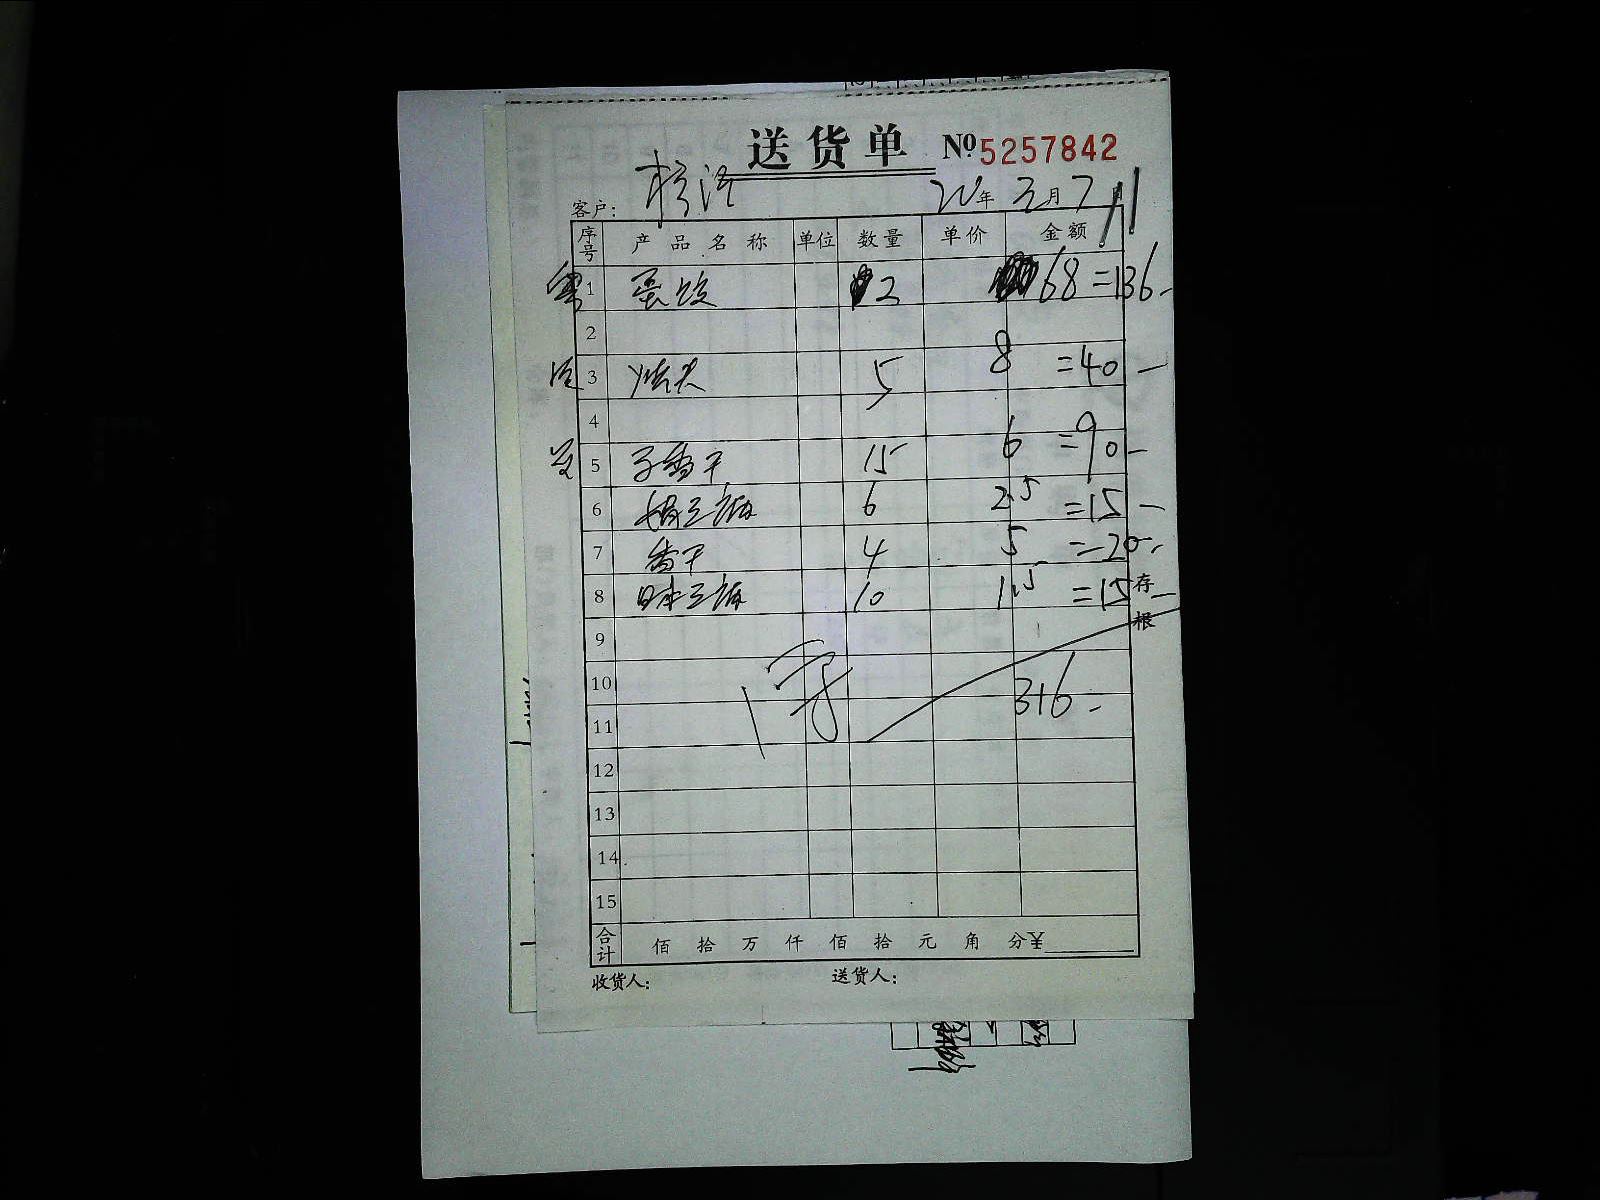 送货单 №5257842
客户： 年 月7
序号 产品名称 单位 数量 单价 金额
1 蛋饺 2 68 =136-
2
3 5 8 =40-
4
5 香干 15 6 =90-
6 6 2.5 =15-
7 香干 4 5 =20-
8 日本豆腐 10 1.5 =15-
9
10 316-
11
12
13
14
15
合计 佰 拾 万 仟 佰 拾 元 角 分¥
收货人： 送货人：
存根